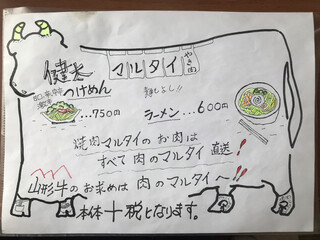 健太
マルタイ
やき肉
つけめん
…750円
ラーメン …600円
焼肉マルタイのお肉は
すべて肉のマルタイ直送!
山形牛のお求めは肉のマルタイへ!!
本体+税となります。